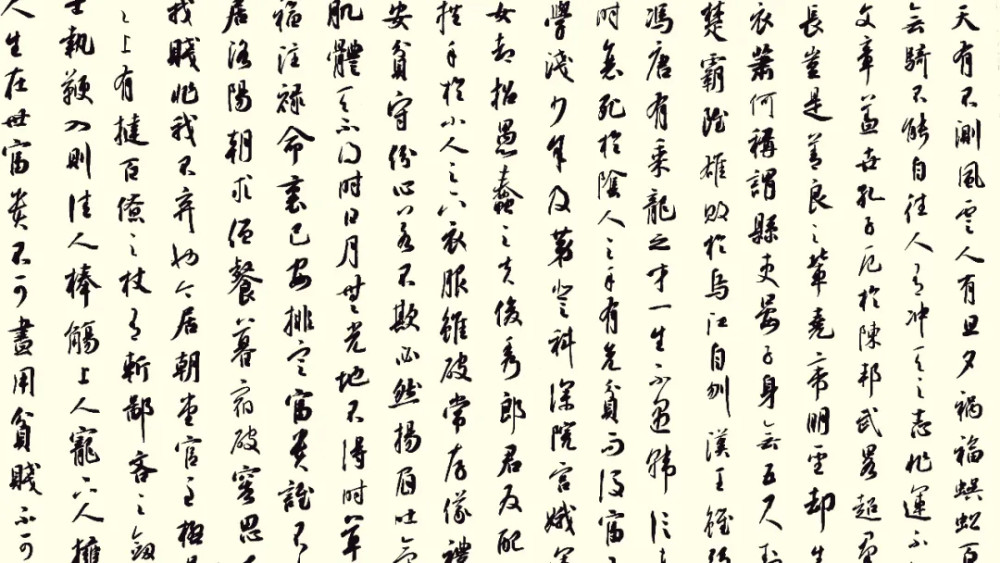 天有不測風雲人有旦夕禍福蜈蚣百
無騎不能自往人有冲天之志非運不
文章蓋世孔子厄於陳邦武畧超
長豈是善良之輩堯帝明聖却生
衣蕭何稱謂縣吏晏子身無五尺封
楚霸雖雄敗於烏江自刎漢王雖弱
馮唐有乘龍之才一生不遇韓信未
時衰死於陰人之手有先貧而後富
學淺少年及第登科深院宮娥運
女却招愚蠢之夫俊秀郎君反配
拱手於小人之下衣服雖破常存儀禮
安貧守份心若不欺必然揚眉吐氣
肌體天不得時日月無光地不得時草
福注祿命裏已安排定富貴誰不
居洛陽朝求僧餐暮宿破窑思
我賤非我不弃也今居朝堂官至極
之上有撻百僚之杖有斬鄙吝之劍
士執鞭入則佳人捧觴上人寵下人擁
人生在世富貴不可盡用貧賤不可